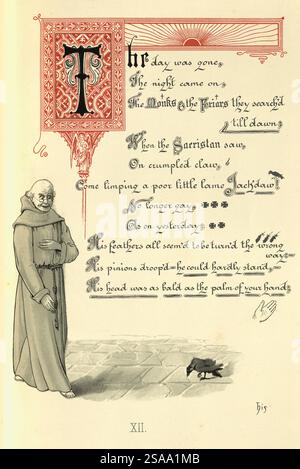 The day was gone
The night came on
The Monks & the Friars they search'd
till dawn
When the Sacristan saw,
On crumpled claw,
Come limping a poor little lame Jackdaw!
No longer gay,
As on yesterday;
His feathers all seem'd to be turn'd the wrong
way—
His pinions droop'd—he could hardly stand—
His head was as bald as the palm of your hand;
His
XII.
alamy
Image ID: 2SAA1MB
www.alamy.com